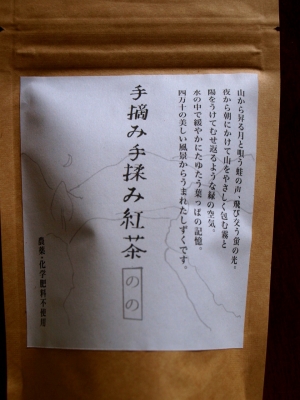 山から昇る月と唄う蛙の声、飛び交う蛍の光。
夜から朝にかけて山をやさしく包む霧と
陽をうけてむせ返るような緑の空気。
水の中で緩やかにたゆたう葉っぱの記憶。
四万十の美しい風景からうまれたしずくです。
手摘み手揉み紅茶 のの
農薬・化学肥料不使用